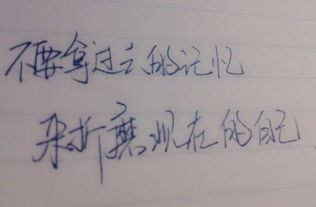 不要拿过去的记忆
来折磨现在的自己